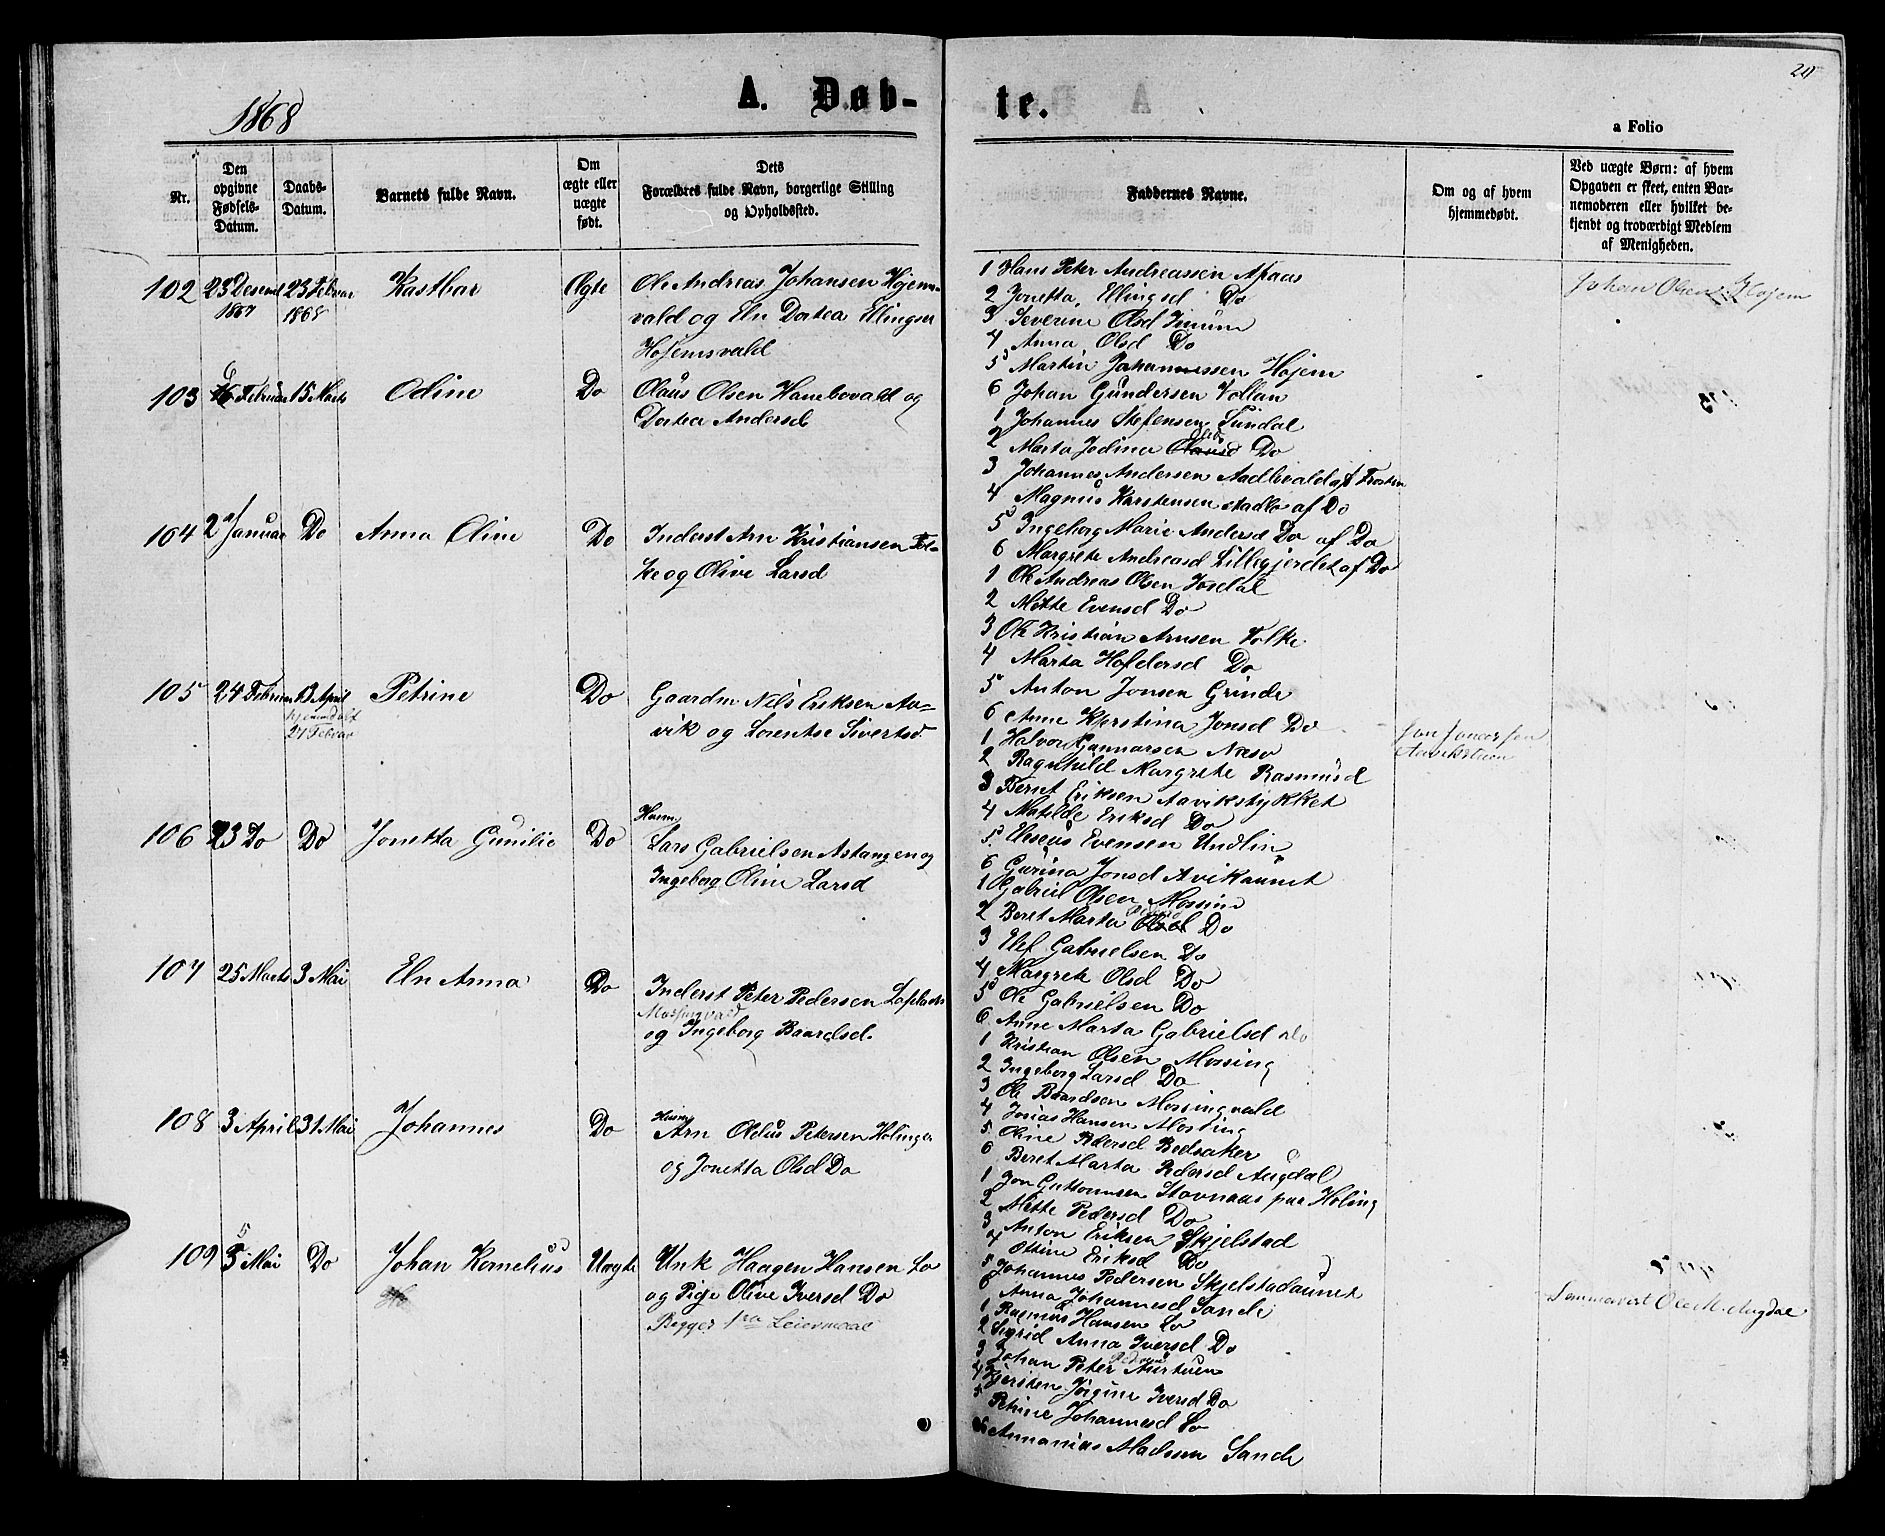 1868
A. Døb-
Nr.
Den opgivne Fødsels-Datum.
Daabs-Datum.
Barnets fulde Navn.
Om ægte eller uægte født.
Dets
Forældres fulde Navn, borgerlige Stilling
og Opholdssted.
102 23 Desemb 1867 23 Februar 1868 Kastbar Ægte Ole Andreas Johansen Højem-
vald og Eln Dortea Ellingsen
Højemsvald
103 6 Februar 15 Marts Odine Do Olaus Olsen Hanebovald og
Dortea Andersd
104 2 Januar Do Anna Oline Do Inderst Arn Kristiansen Fol-
ke og Olive Larsd
105 24 Februar 13 April Petrine Do Gaardm Nils Eriksen Aa-
hjemmdøbt
27 Februar
vik og Lorentse Sivertsd
106 23 Do Do Jonetta Gunilie Do Husm
Lars Gabrielsen Astangen og
Ingeborg Oline Larsd
107 25 Marts 3 Mai Eln Anna Do Inderst Peter Pedersen
Mossingvald
og Ingeborg Baardsd.
108 3 April 31 Mai Johannes Do Husm
Arn Oldus Petersen Holinger
og Jonetta Olsd Do
109 5 Mai Do Johan Kornelius Uægte Unk Haagen Hansen Lo
og Pige Olive Iversd Do
Begges 1ra Leiermaal
te.
20
a Folio
Faddernes Navne.
Om og af hvem
hjemmedøbt.
Ved uægte Børn: af hvem
Opgaven er skeet, enten Bar-
nemoderen eller hvilket be-
kjendt og troværdigt Medlem
af Menigheden.
1 Hans Peter Andreassen Aspaas
Johan Olsen Højem
2 Jonetta Ellingsd Do
3 Severine Olsd Jinum
4 Anna Olsd Do
5 Martin Johannessen Højem
6 Johan Gundersen Vollan
1 Johannes Stefensen Sundal
2 Marta Jodina Olavsd Do
3 Johannes Andersen Aadlivald af Frosten
4 Magnus Karstensen Stadlo af Do
5 Ingeborg Marie Andersd Do af Do
6 Margrete Andreasd Lillegjerdet af Do
1 Ole Andreas Olsen Jøsdal
2 Mette Evensd Do
3 Ole Kristian Arnsen Folke
4 Marta Hofdersd Do
5 Anton Jonsen Grinde
6 Anne Kjerstina Jonsd Do
1 Halvor Gunnarsen Næss
2 Ragnhild Margrete Rasmusd
3 Bernt Eriksen Aavikstykket
4 Matilde Eriksd Do
5 Eliseus Evensen Undlin
6 Gurina Jonsd Avikaunet
1 Gabriel Olsen Mossing
2 Beret Marta Olsd Do
3 Elef Gabrielsen Do
4 Margrete Olsd Do
5 Ole Gabrielsen Do
6 Anne Marta Gabrielsd Do
1 Kristian Olsen Mossing
2 Ingeborg Larsd Do
3 Ole Baardsen Mossingvald
4 Josias Hansen Mossing
5 Oline Pedersd Bedsaker
6 Beret Marta Pedersd Augdal
1 Jon Guttormsen Stavnaas paa Holing
2 Mette Pedersd Do
3 Anton Eriksen Skjelstad
4 Ottine Eriksd Do
5 Johannes Pedersen Skjelstadaunet
6 Anna Johannesd Sande
1 Rasmus Hansen Lo
2 Sigrid Anna Iversd Do
3 Johan Peter Austuen
4 Kjersten Jørgine Iversd Do
5 Petrine Johannesd Lo
6 Annanias Madssen Sande